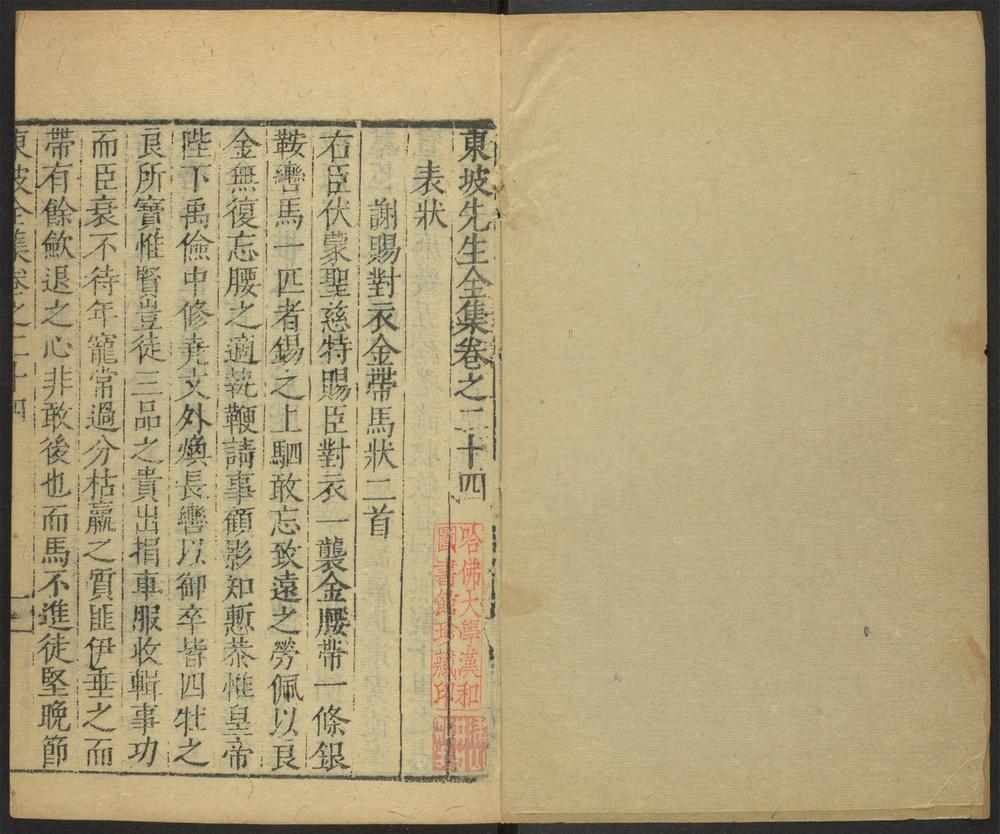 東坡先生全集卷之二十四
表狀
謝賜對衣金帶馬狀二首
右臣伏蒙聖慈特賜臣對衣一襲金腰帶一條銀
鞍轡馬一匹者錫之上駟敢忘致遠之勞佩以良
金無復忘腰之適執鞭請事顧影知慙恭惟皇帝
陛下禹儉中修堯文外煥長轡以御卒皆四牡之
良所寶惟賢豈徒三品之貴出捐車服收輯事功
而臣衰不待年寵常過分枯羸之質匪伊垂之而
帶有餘歛退之心非敢後也而馬不進徒堅晚節
東坡全集卷之二十四
一
哈佛大學漢和
圖書館珍藏印